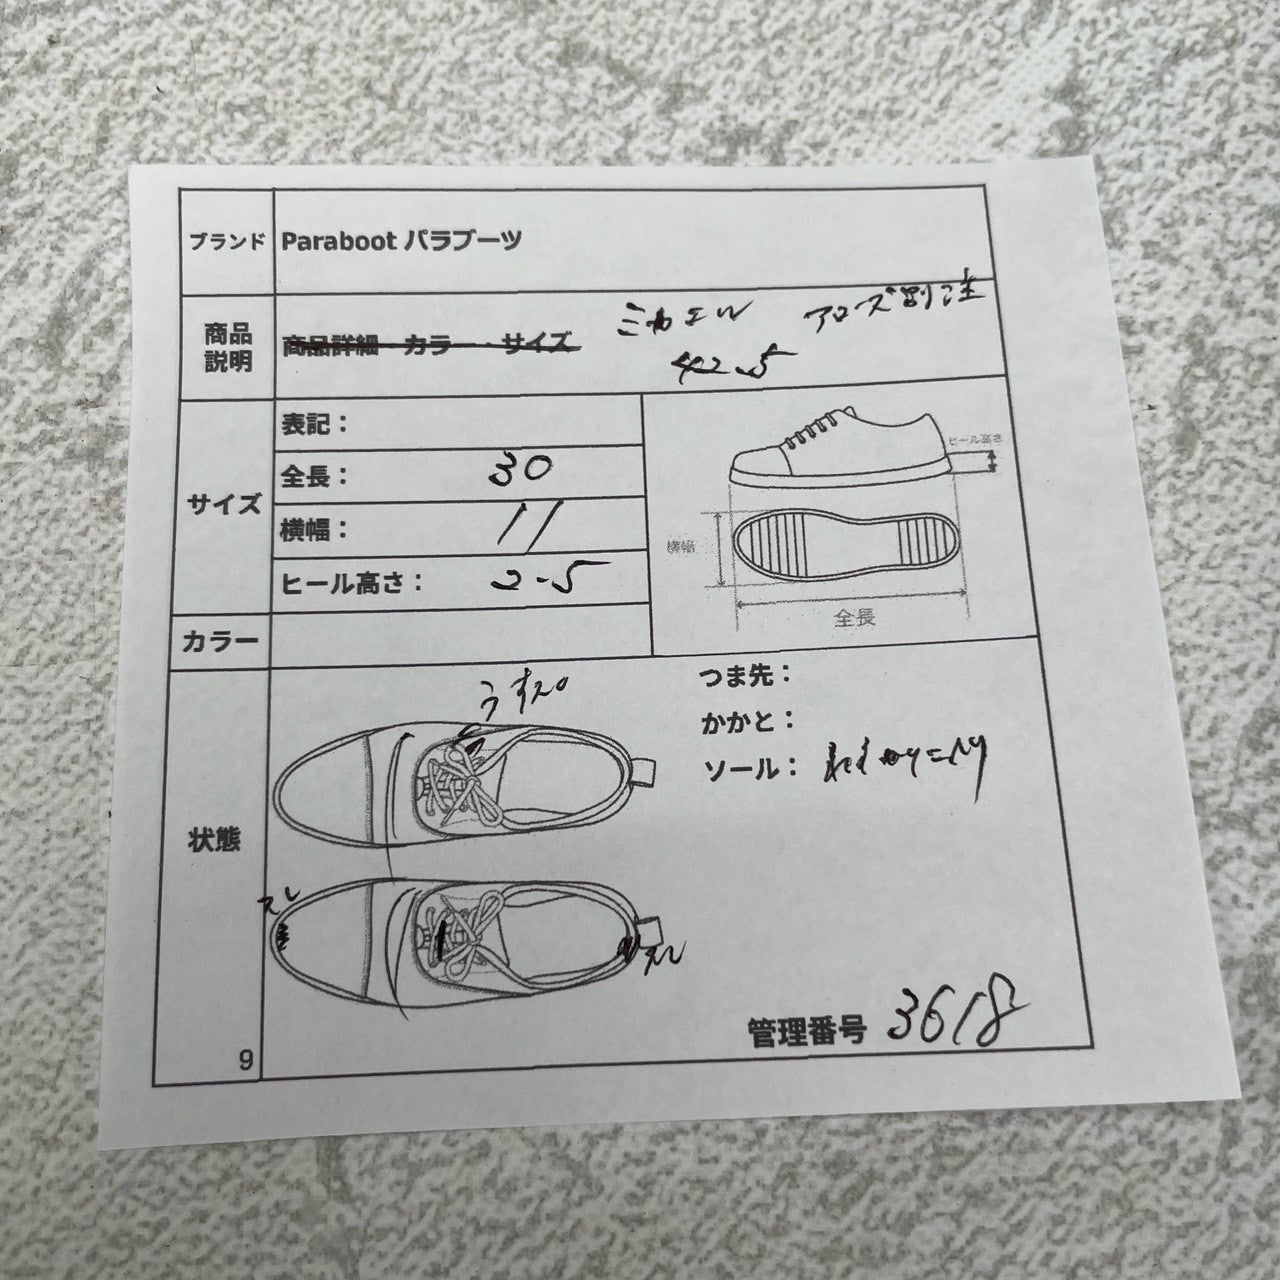 ブランド Paraboot パラブーツ
商品説明 商品詳細 カラー サイズ ミカエル アローズ別注
42.5
サイズ
表記：
全長： 30
横幅： 11
ヒール高さ： 2.5
ヒール高さ
横幅
全長
カラー
状態
つま先：
かかと：
ソール：
スレ
スレ
管理番号 3618
9